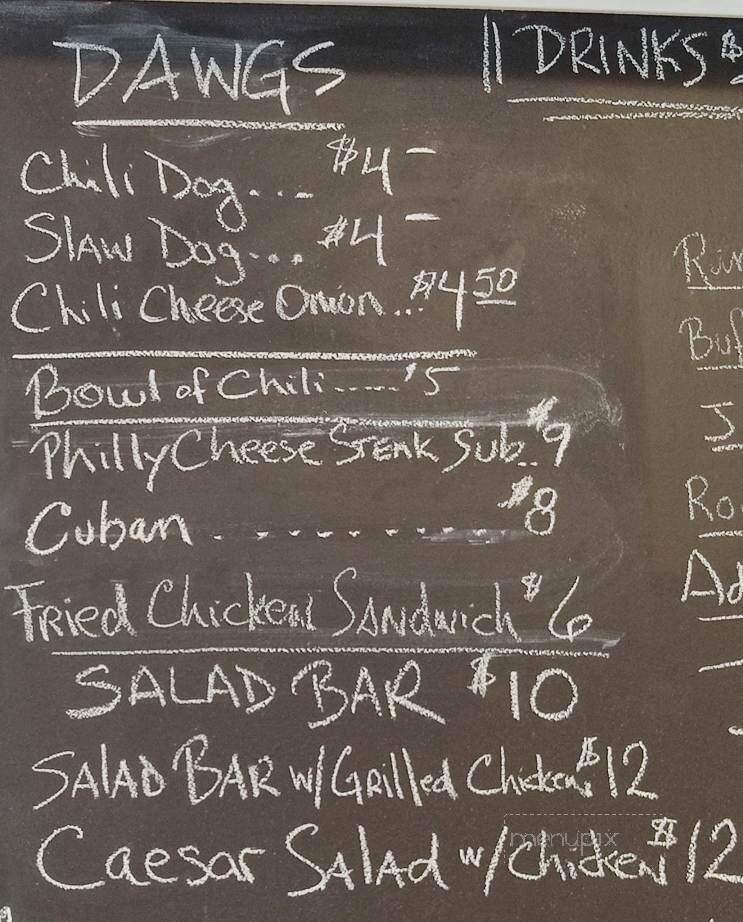 DAWGS
Chili Dog... $4-
Slaw Dog... $4-
Chili Cheese Onion... $4 50
Bowl of Chili..... $5
Philly Cheese Steak Sub.. $9
Cuban ......... $8
Fried Chicken Sandwich $6
SALAD BAR $10
Salad Bar w/ Grilled Chicken $12
Caesar Salad w/ Chicken $12
DRINKS $
menupix